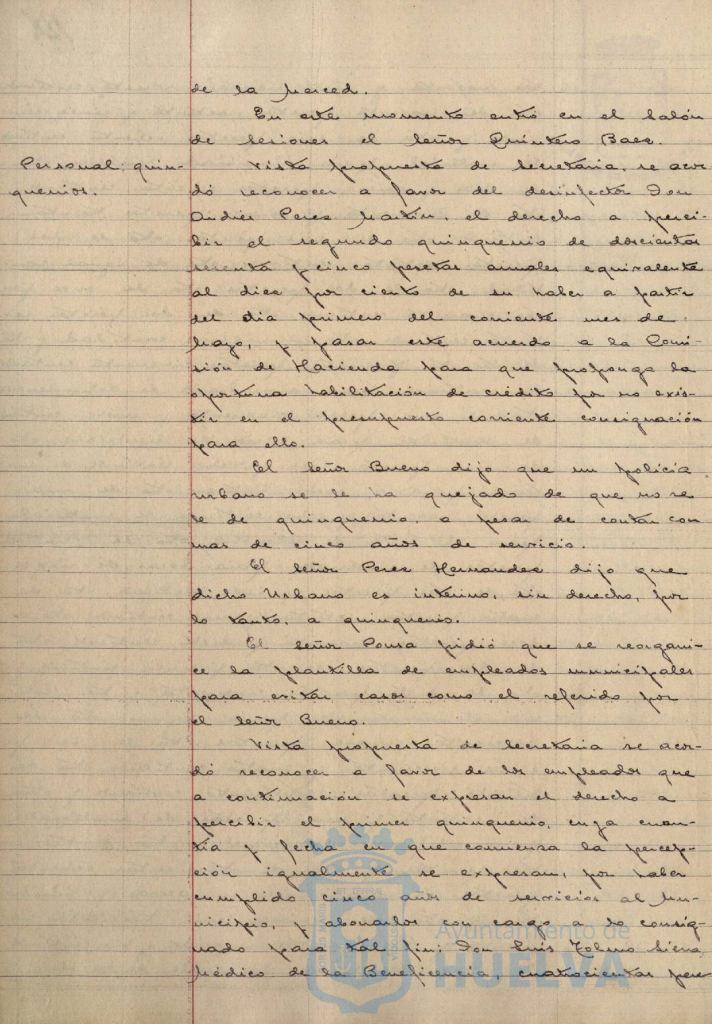 de la Merced.
En este momento entró en el Salón
de Sesiones el Señor Quintero Baez.
Personal: quin-
quenios.
Vista propuesta de Secretaria, se acor-
dó reconocer a favor del desinfector Don
Andrés Perez Martin, el derecho a perci-
bir el segundo quinquenio de doscientas
sesenta y cinco pesetas anuales equivalente
al diez por ciento de su haber a partir
del dia primero del corriente mes de
Mayo, y pasar este acuerdo a la Comi-
sión de Hacienda para que proponga la
oportuna habilitación de crédito por no exis-
tir en el presupuesto corriente consignación
para ello.
El Señor Bueno dijo que un policía
urbano se le ha quejado de que no se
le de quinquenio, a pesar de contar con
mas de cinco años de servicio.
El Señor Perez Hernandez dijo que
dicho Urbano es interino, sin derecho, por
lo tanto, a quinquenio.
El Señor Ponsa pidió que se reorgani-
ce la plantilla de empleados municipales
para evitar casos como el referido por
el Señor Bueno.
Vista propuesta de Secretaria se acor-
dó reconocer a favor de los empleados que
a continuación se expresan el derecho a
percibir el primer quinquenio, cuya cuan-
tía y fecha en que comienza la percep-
ción igualmente se expresan, por haber
cumplido cinco años de servicios al Mu-
nicipio, y abonarlos con cargo a lo consig-
nado para tal fin: Don Luis
Médico de la Beneficencia, cuatrocientas pese
Ayuntamiento de
HUELVA